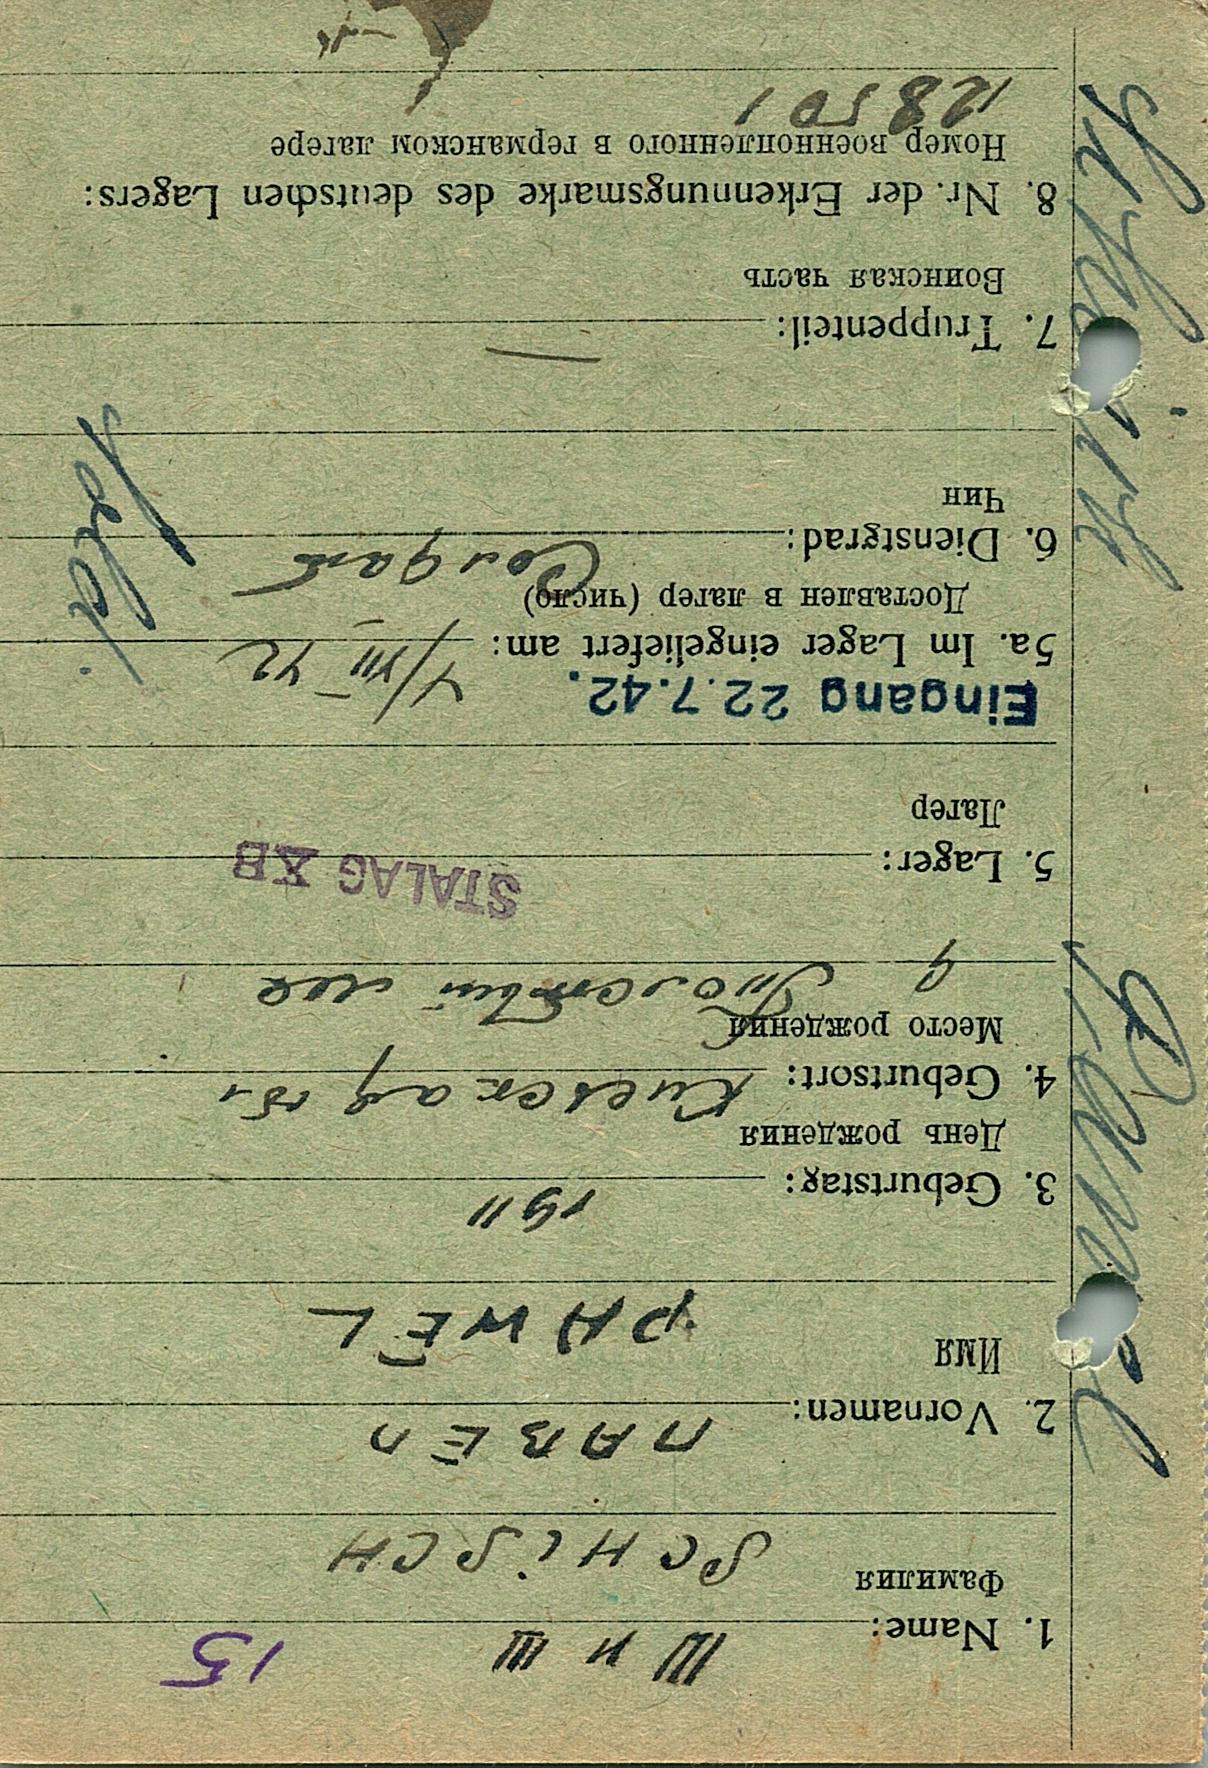 15
ШИШ
1. Name:
Фамилия
SCHiSCH
ПАВЕЛ
2. Vornamen:
Имя
PAWEL
1911
3. Geburtstag:
День рождения
4. Geburtsort: Киевская обл
Место рождения
д Толстый лес
5. Lager: STALAG XB
Лагер
Eingang 22.7.42.
5a. Im Lager eingeliefert am: 4/VII 42
Доставлен в лагер (число)
6. Dienstgrad: Солдат
Чин
Sold.
7. Truppenteil: —
Воинская часть
8. Nr. der Erkennungsmarke des deutschen Lagers:
Номер военнопленного в германском лагере
128501
Pawel